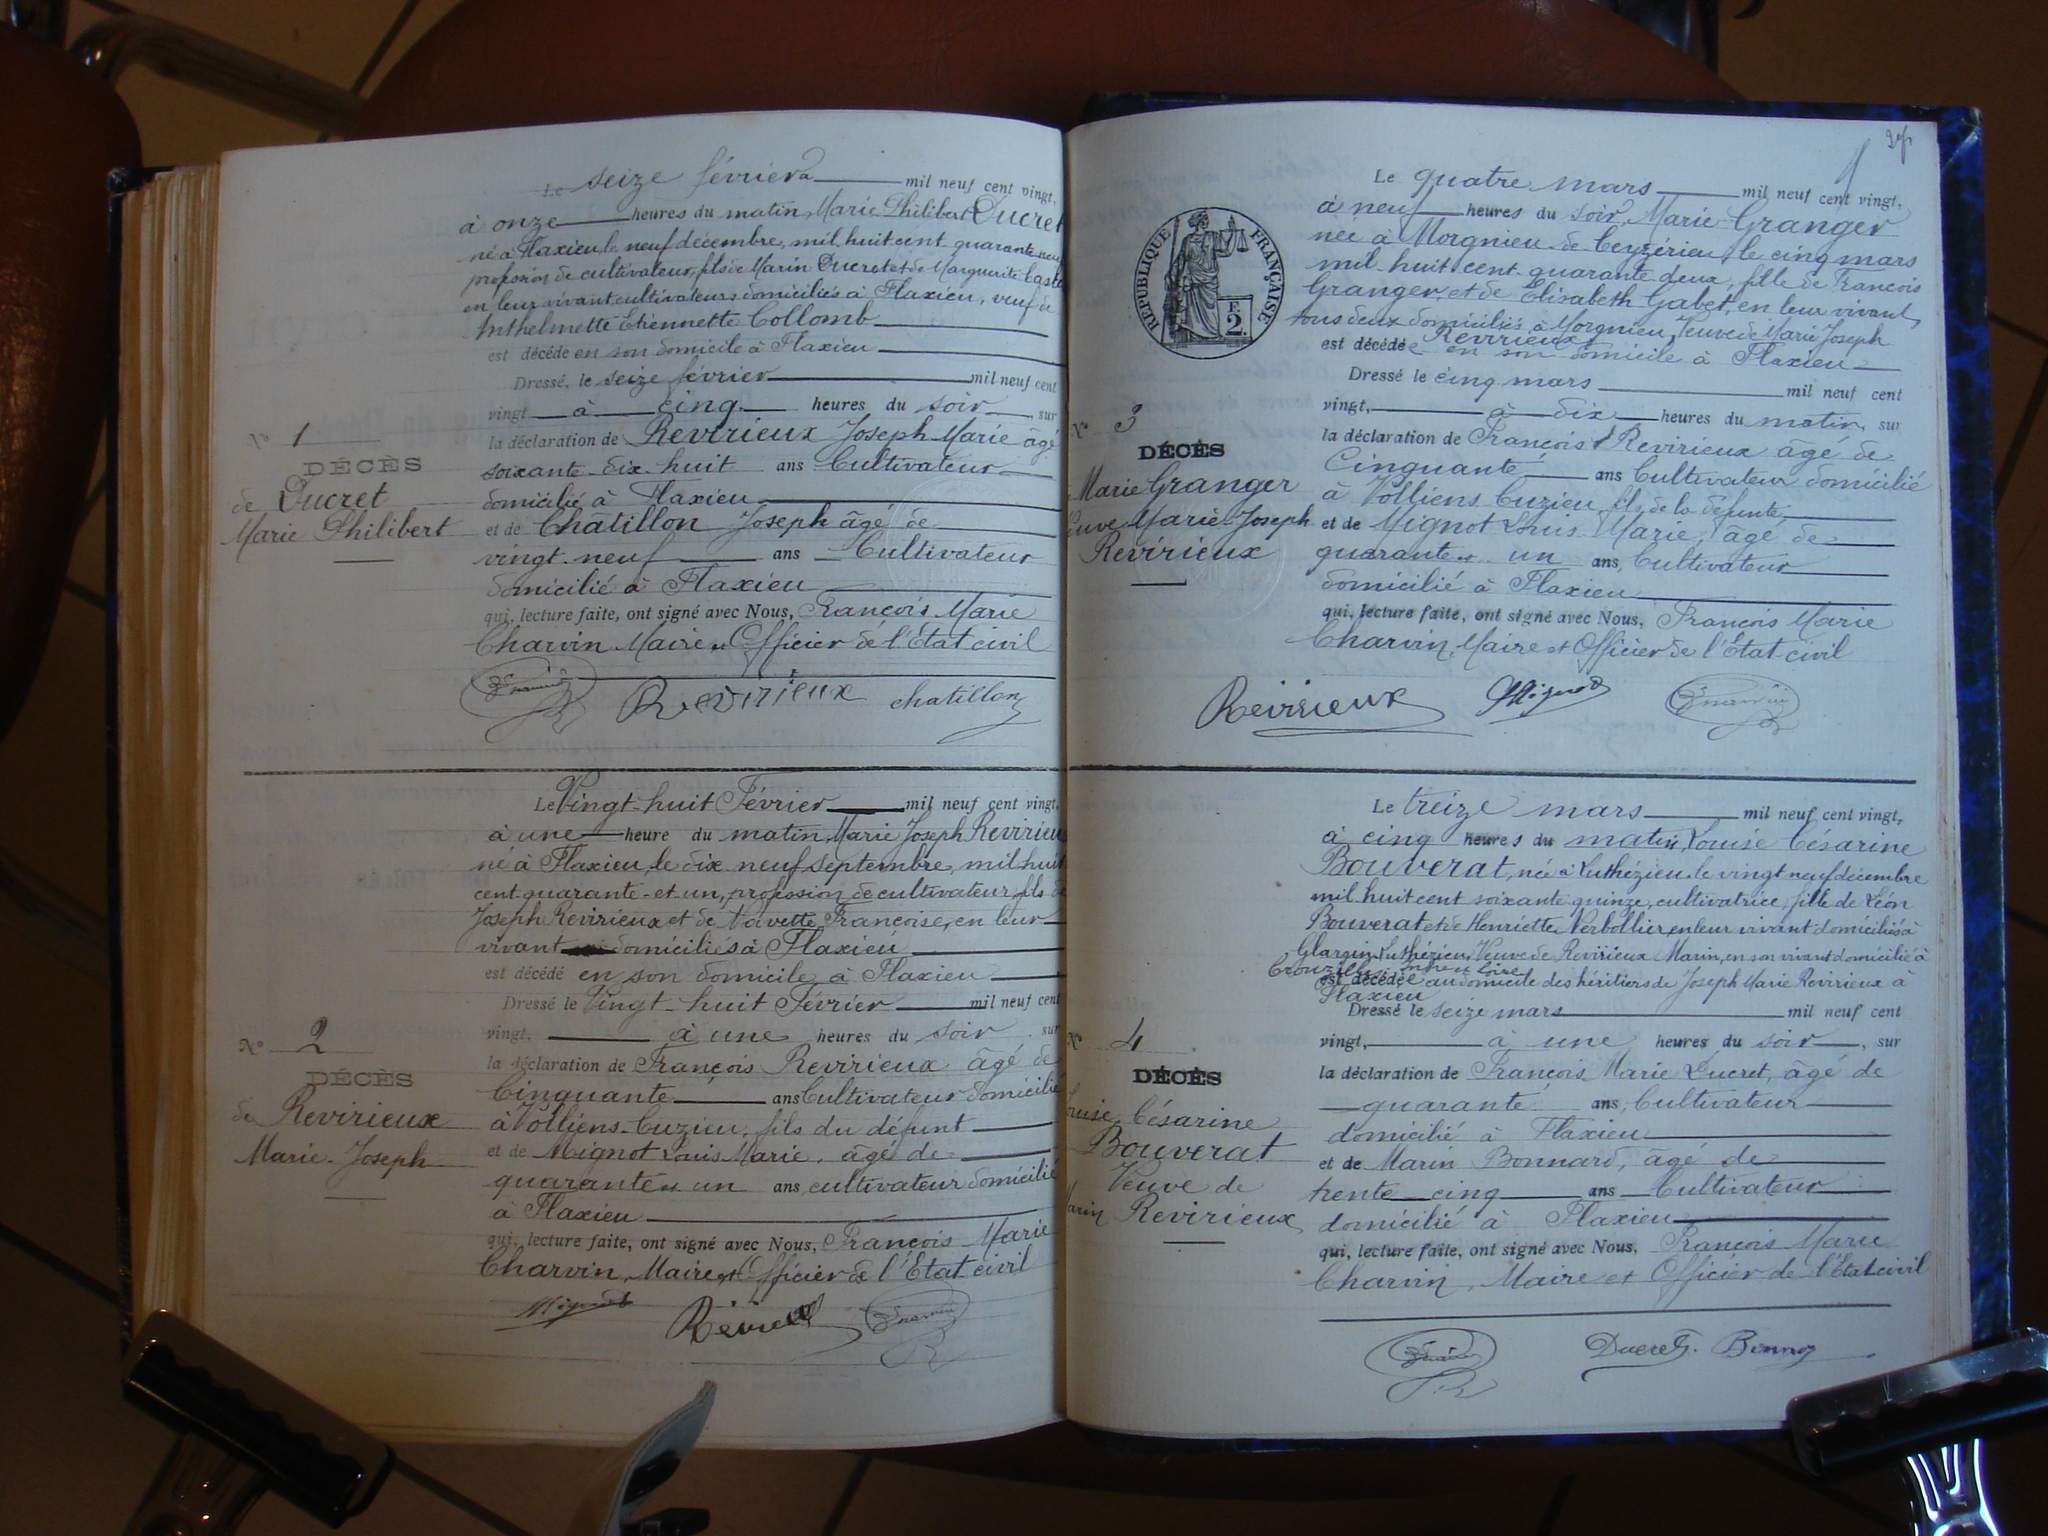 Le seize février mil neuf cent vingt,
à onze heures du matin, Marie Philibert Ducret
né à Flaxieu, le neuf décembre, mil huit cent quarante neuf
profession de cultivateur, fils de Marin Ducret et de Marguerite
en leur vivant cultivateurs domiciliés à Flaxieu, veuf de
Anthelmette Etiennette Collomb
est décédé en son domicile à Flaxieu
Dressé, le seize février mil neuf cent
vingt à cinq heures du soir, sur
la déclaration de Revirieux Joseph Marie âgé
soixante-dix-huit ans Cultivateur
domicilié à Flaxieu
et de Chatillon Joseph âgé de
vingt-neuf ans Cultivateur
domicilié à Flaxieu
qui, lecture faite, ont signé avec Nous, François Marie
Charvin Maire et Officier de l'Etat civil
Revirieux chatillon
N° 1
DÉCÈS
de Ducret
Marie Philibert
Le Vingt-huit Février mil neuf cent vingt,
à une heure du matin, Marie Joseph Revirieux
né à Flaxieu, le dix neuf septembre, mil huit
cent quarante-et-un, profession de cultivateur, fils de
Joseph Revirieux et de Navette Françoise, en leur
vivant domiciliés à Flaxieu
est décédé en son domicile à Flaxieu
Dressé le Vingt-huit Février mil neuf cent
vingt, à une heures du soir sur
la déclaration de François Revirieux âgé de
Cinquante ans Cultivateur domicilié
à Volliens-Cuzieu, fils du défunt
et de Mignot Louis Marie, âgé de
quarante et un ans, cultivateur domicilié
à Flaxieu
qui, lecture faite, ont signé avec Nous, François Marie
Charvin, Maire et Officier de l'Etat civil
N° 2
DÉCÈS
de Revirieux
Marie-Joseph
RÉPUBLIQUE FRANÇAISE
F.
2.
Le quatre mars mil neuf cent vingt,
à neuf heures du soir, Marie Granger
née à Morgnieu-de Ceyzérieu, le cinq mars
mil-huit cent-quarante deux, fille de François
Granger, et de Elisabeth Gabet, en leur vivant,
tous deux domiciliés à Morgnieu, Veuve de Marie Joseph
Revirieux
est décédée en son domicile à Flaxieu
Dressé le cinq mars mil neuf cent
vingt, à dix heures du matin, sur
la déclaration de François Revirieux âgé de
Cinquante ans Cultivateur domicilié
à Volliens Cuzieu, fils de la défunte,
et de Mignot Louis Marie, âgé de
quarante et un ans, Cultivateur
domicilié à Flaxieu
qui, lecture faite, ont signé avec Nous, François Marie
Charvin, Maire et Officier de l'Etat-civil
Revirieux Mignot
N° 3
DÉCÈS
Marie Granger
Veuve Marie-Joseph
Revirieux
Le treize mars mil neuf cent vingt,
à cinq heures du matin, Louise Césarine
Bouverat, née à Luthézieu, le vingt neuf décembre
mil huit cent soixante quinze, cultivatrice, fille de Léon
Bouverat et de Henriette Verbollier, en leur vivant domiciliés à
Luthézieu, Veuve de Revirieux Marin, en son vivant domicilié à
est décédée au domicile des héritiers de Joseph Marie Revirieux à
Flaxieu
Dressé le seize mars mil neuf cent
vingt, à une heures du soir, sur
la déclaration de François Marie Ducret, âgé de
quarante ans, Cultivateur
domicilié à Flaxieu
et de Marin Bonnard, âgé de
trente-cinq ans Cultivateur
domicilié à Flaxieu
qui, lecture faite, ont signé avec Nous, François Marie
Charvin, Maire et Officier de l'Etat civil
Ducret
N° 4
DÉCÈS
Louise Césarine
Bouverat
Veuve de
Marin Revirieux